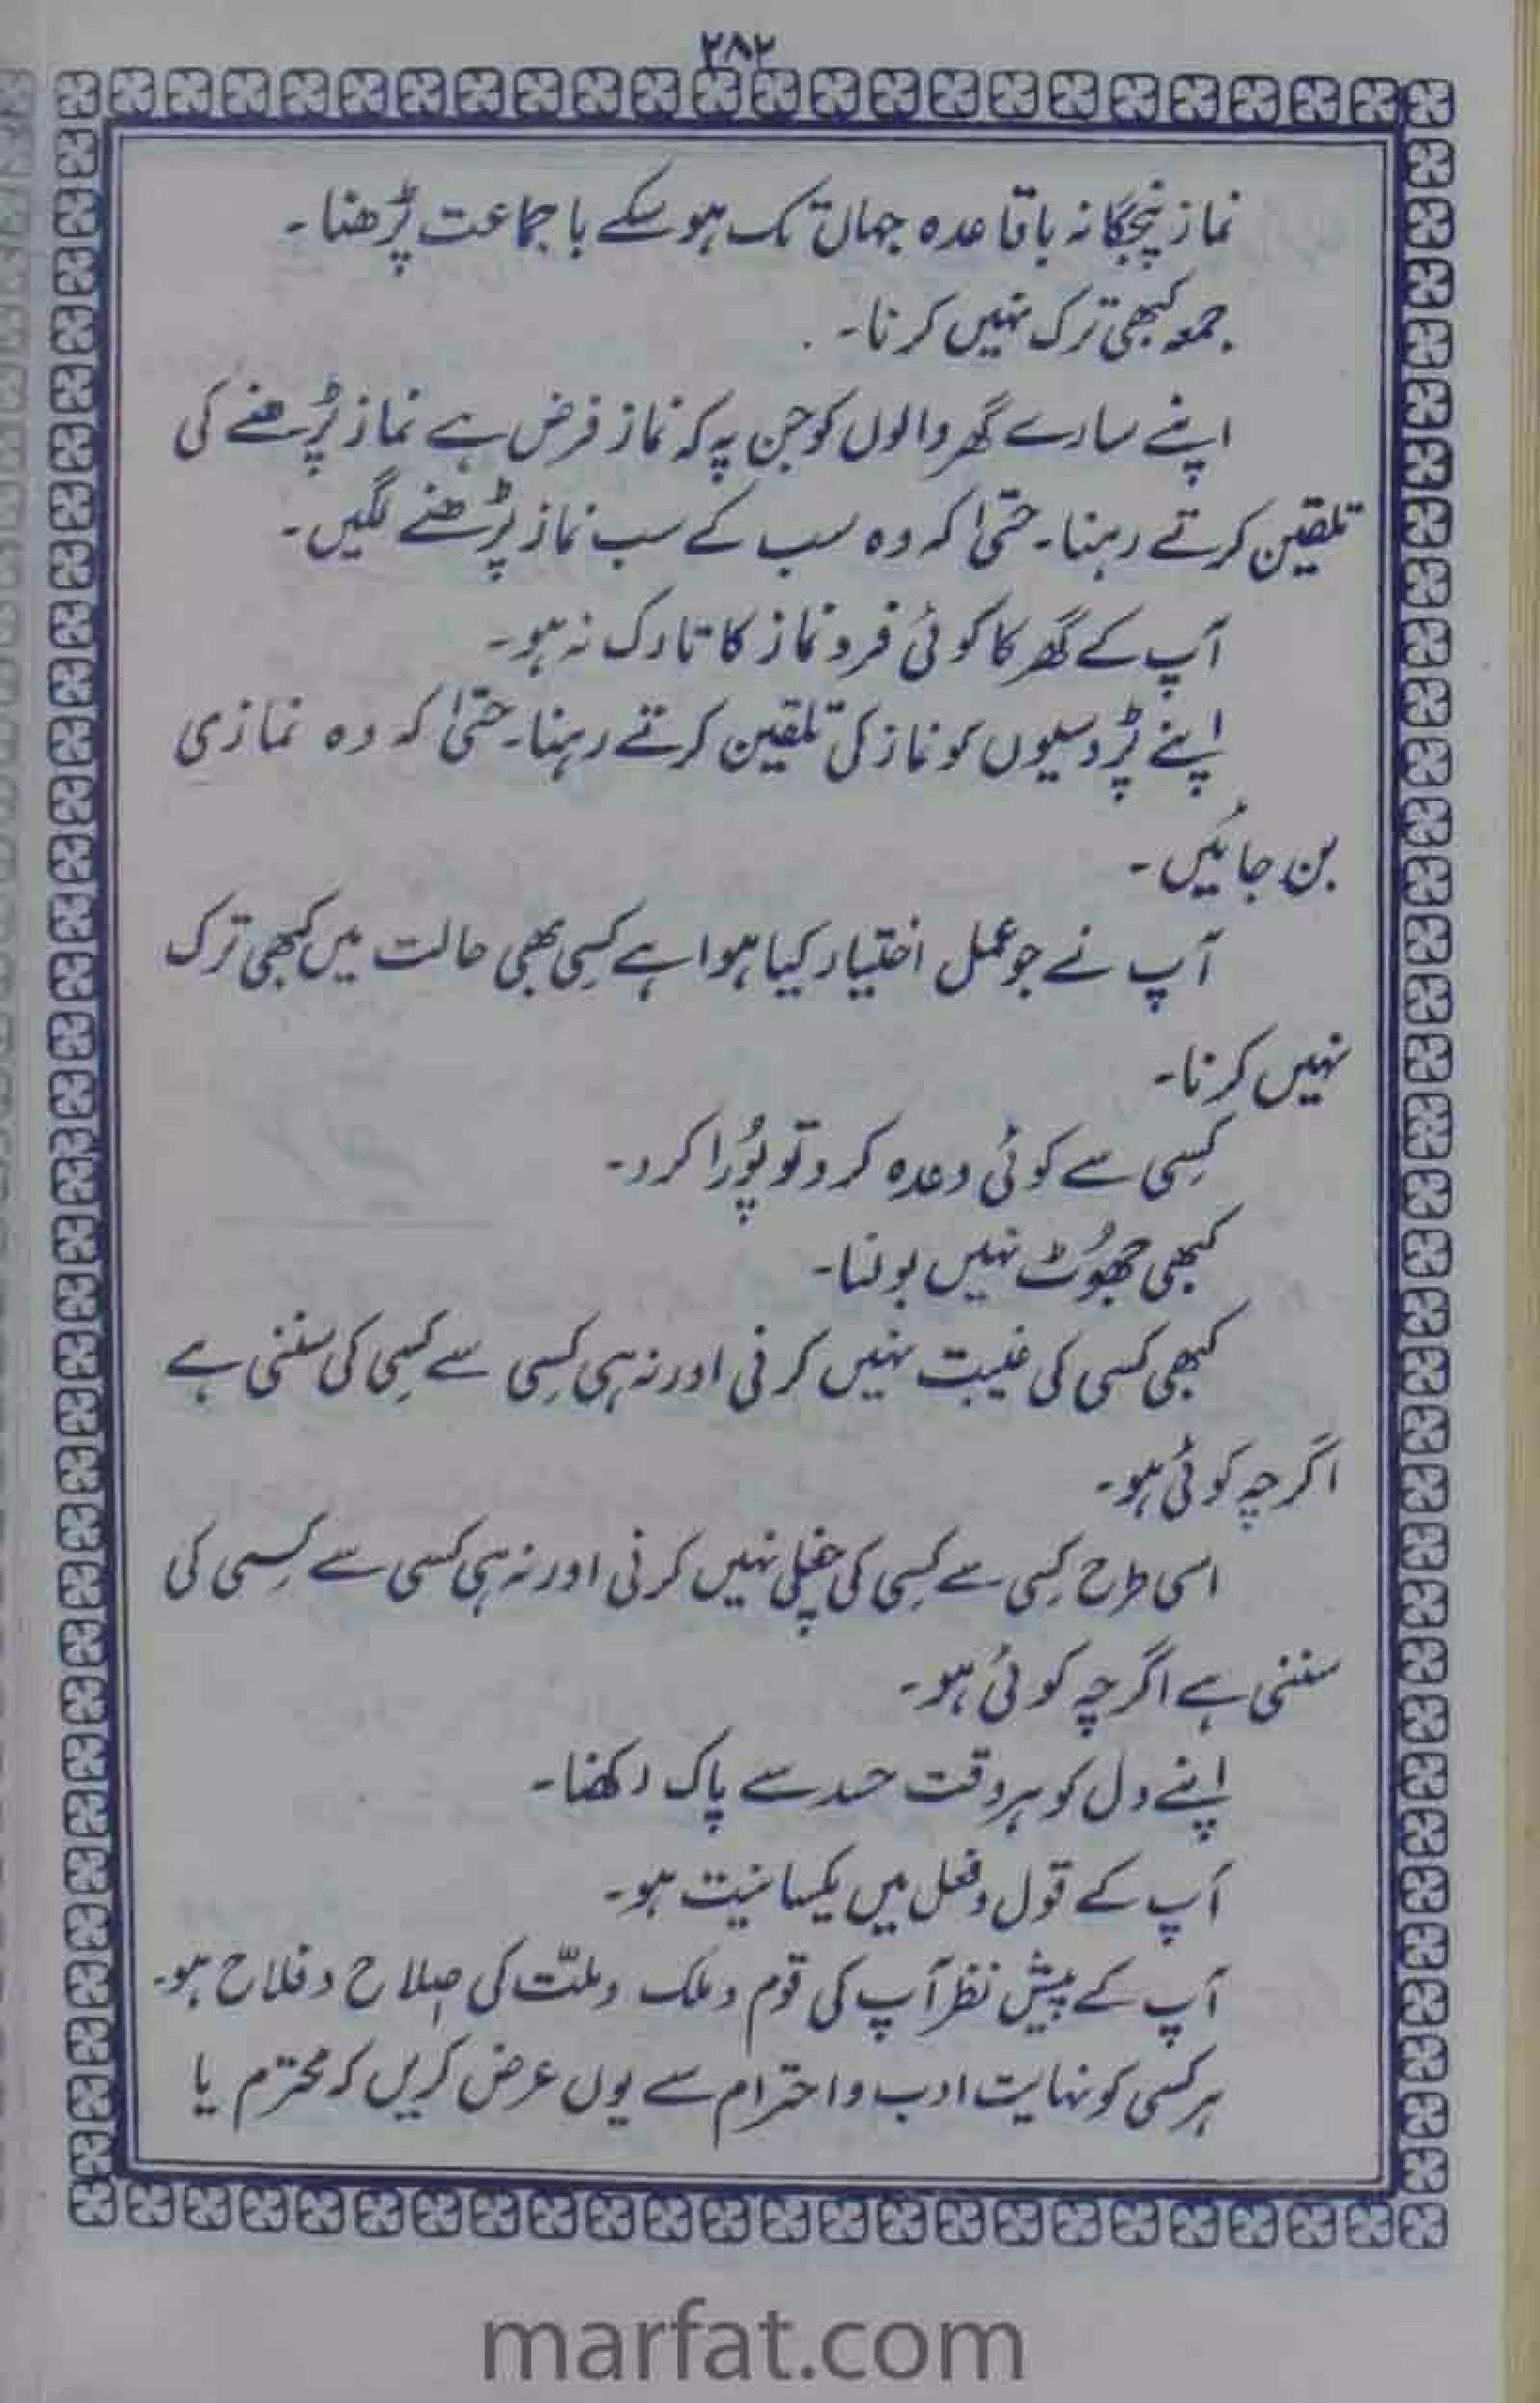 ۲۸۲
نماز پنجگانہ باقاعدہ جہاں تک ہو سکے باجماعت پڑھنا۔
جمعہ کبھی ترک نہیں کرنا۔
اپنے سارے گھر والوں کو جن پہ کہ نماز فرض ہے نماز پڑھنے کی
تلقین کرتے رہنا۔ حتیٰ کہ وہ سب کے سب نماز پڑھنے لگیں۔
آپ کے گھر کا کوئی فرد نماز کا تارک نہ ہو۔
اپنے پڑوسیوں کو نماز کی تلقین کرتے رہنا۔ حتیٰ کہ وہ نمازی
بن جائیں۔
آپ نے جو عمل اختیار کیا ہوا ہے کسی بھی حالت میں کبھی ترک
نہیں کرنا۔
کسی سے کوئی وعدہ کرو تو پُورا کرو۔
کبھی جھُوٹ نہیں بولنا۔
کبھی کسی کی غیبت نہیں کرنی اور نہ ہی کسی سے کسی کی سننی ہے
اگرچہ کوئی ہو۔
اسی طرح کسی سے کسی کی چغلی نہیں کرنی اور نہ ہی کسی سے کسی کی
سننی ہے اگرچہ کوئی ہو۔
اپنے دل کو ہر وقت حسد سے پاک رکھنا۔
آپ کے قول و فعل میں یکسانیت ہو۔
آپ کے پیش نظر آپ کی قوم و ملک و ملّت کی اصلاح و فلاح ہو۔
ہر کسی کو نہایت ادب و احترام سے یوں عرض کریں کہ محترم یا
marfat.com